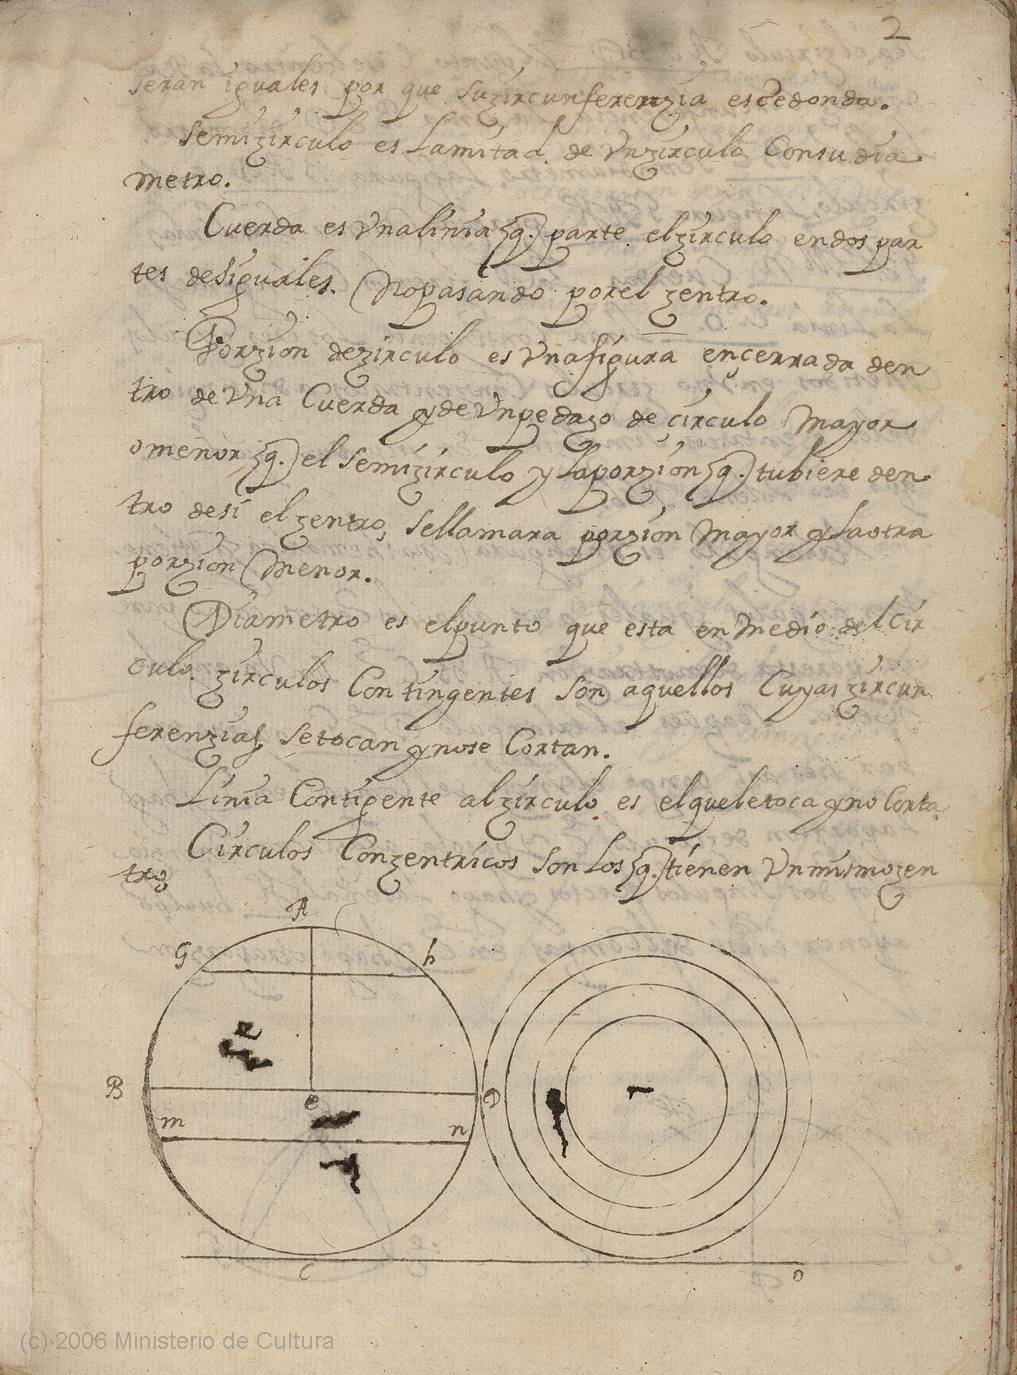 2
seran iguales por que suzircunferenzia es redonda.
semizirculo es Lamitad de Vnzirculo Consu dia
metro.
Cuerda es Vnalinia q. parte elzirculo endos par
tes desiguales. Nopasando porel zentro.
Porzion dezirculo es Vnafigura ençerrada den
tro de Vna Cuerda y de Vnpedazo de circulo Mayor
omenor q. el semizirculo y Laporzion q. tubiere den
tro desi el zentro, sellamara porzion Mayor y Laotra
porzion Menor.
Diametro es elpunto que esta enmedio del Cir
culo. zirculos Contingentes son aquellos Cuyas zircun
ferenzias setocan ynose Cortan.
Linia Contigente alzirculo es elqueletoca yno Corta.
Circulos Conzentricos son Los q. tienen Vnmismozen
tro
A
G h
B e D
m n
C o
(c) 2006 Ministerio de Cultura